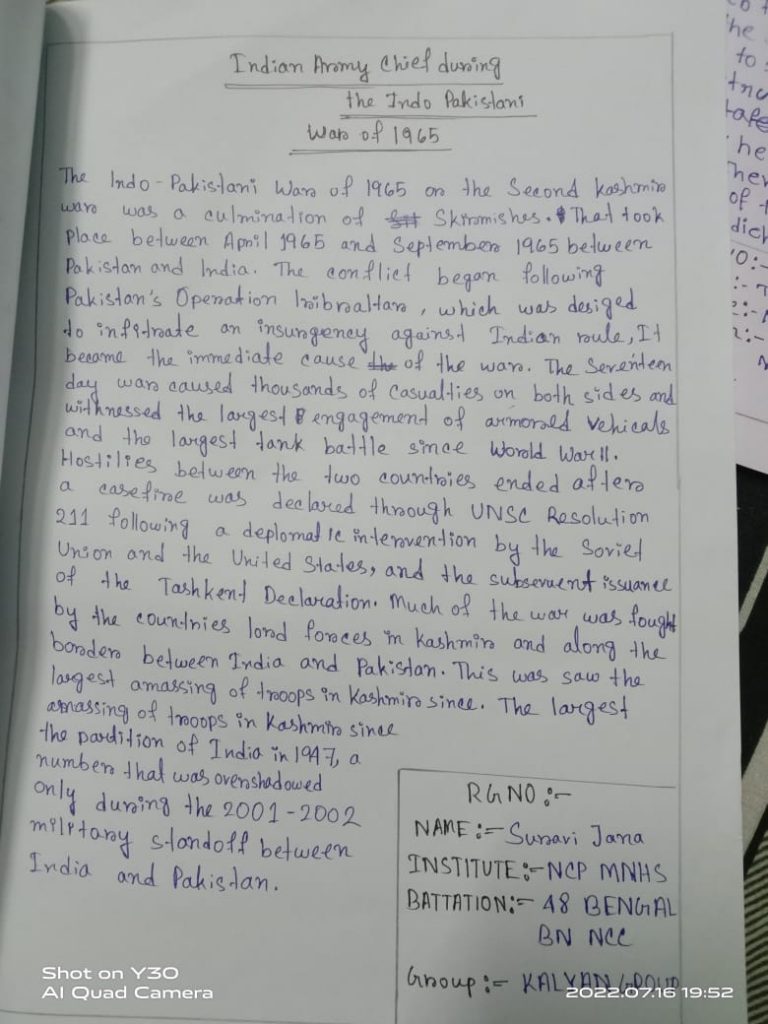 Indian Army Chief during
the Indo Pakistani
War of 1965
The Indo-Pakistani War of 1965 or the Second kashmir
war was a culmination of Skirmishes. That took
place between April 1965 and September 1965 between
Pakistan and India. The conflict began following
Pakistan's Operation Inibraltar, which was desiged
to infitrate an insurgency against Indian rule, It
became the immediate cause of the war. The Seventeen
day war caused thousands of Casualties on both sides and
withnessed the largest engagement of armorald vehicals
and the largest tank battle since World War II.
Hostilies between the two countries ended after
a casefire was declared through UNSC Resolution
211 following a deplomatic intervention by the Soviet
Union and the United States, and the subservent issuance
of the Tashkent Declaration. Much of the war was fought
by the countries lord forces in Kashmir and along the
border between India and Pakistan. This was saw the
largest amassing of troops in Kashmir since. The largest
amassing of troops in Kashmir since
the pardition of India in 1947, a
number that was overshadowed
only during the 2001-2002
military standoff between
India and Pakistan.
RGNO :-
NAME :- Surari Jana
INSTITUTE :- NCP MNHS
BATTATION :- 48 BENGAL
BN NCC
Group :- KALYAN GROUP
Shot on Y30
AI Quad Camera
2022.07.16 19:52